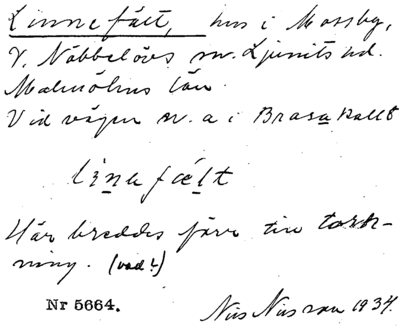 Linnefält, hus i Mossby,
V. Nöbbelövs sn. Ljunits hd.
Malmöhus län.
Vid vägen n. a i Brasakallt
li̱nefæ̱lt
Här breddes förr tin tork-
ning. (vad?)
Nr 5664.
Nils Nilsson 1934.